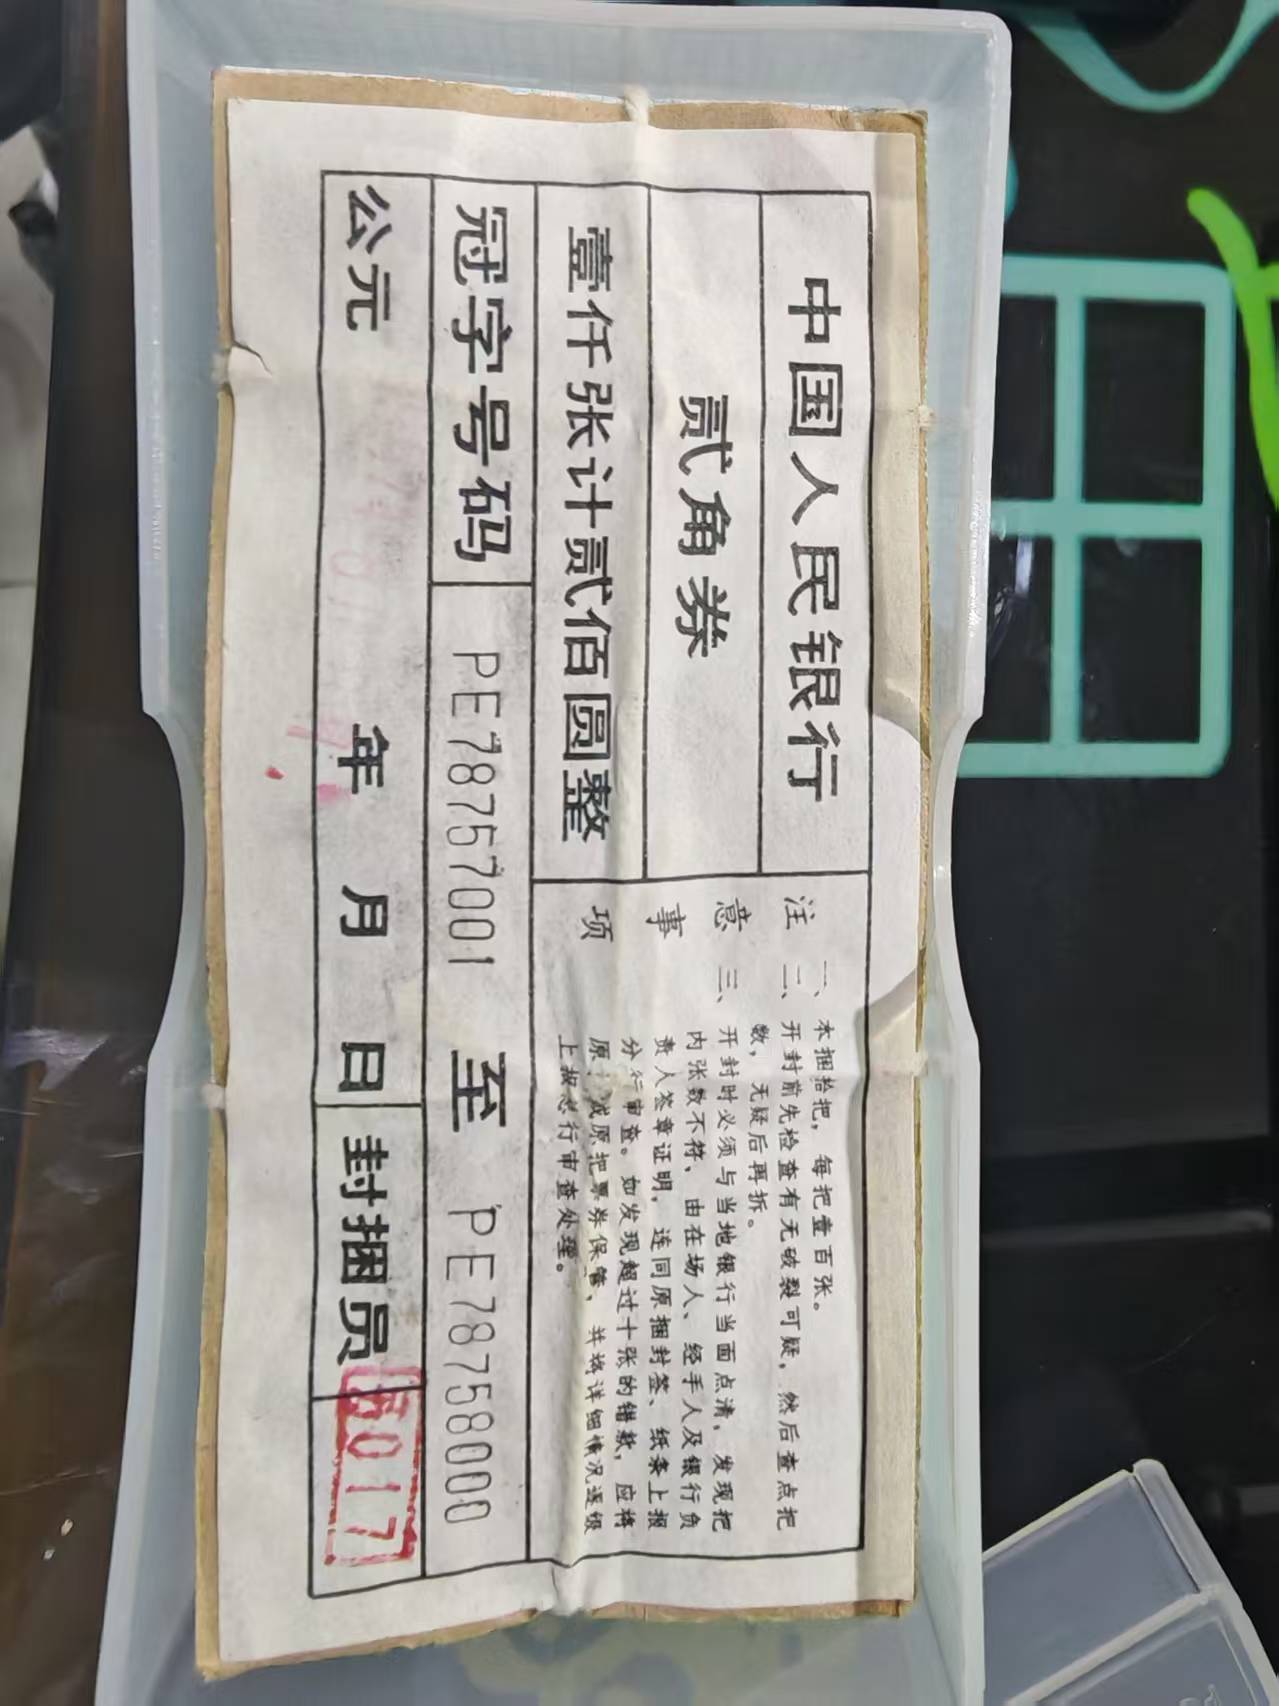 中国人民银行
贰角券
壹仟张计贰佰圆整
注意事项
一、本捆拾把，每把壹百张。
二、开封前先检查有无破裂可疑，然后查点把
数，无疑后再拆。
三、开封时必须与当地银行当面点清，发现把
内张数不符，由在场人、经手人及银行负
责人签章证明，连同原捆封签、纸条上报
分行审查。如发现超过十张的错款，应将
原 成原把票券保管，并将详细情况逐级
上报总行审查处理。
冠字号码 PE78757001 至 PE78758000
公元 年 月 日 封捆员 5017